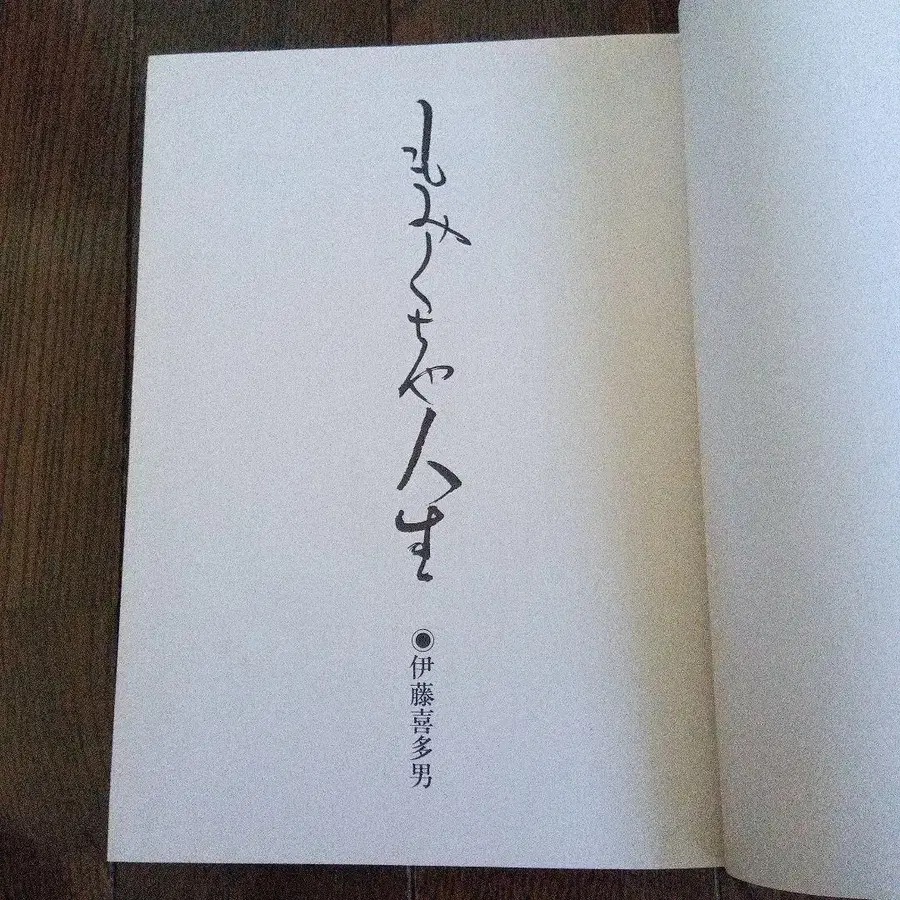 もみくちや人生
◉伊藤喜多男